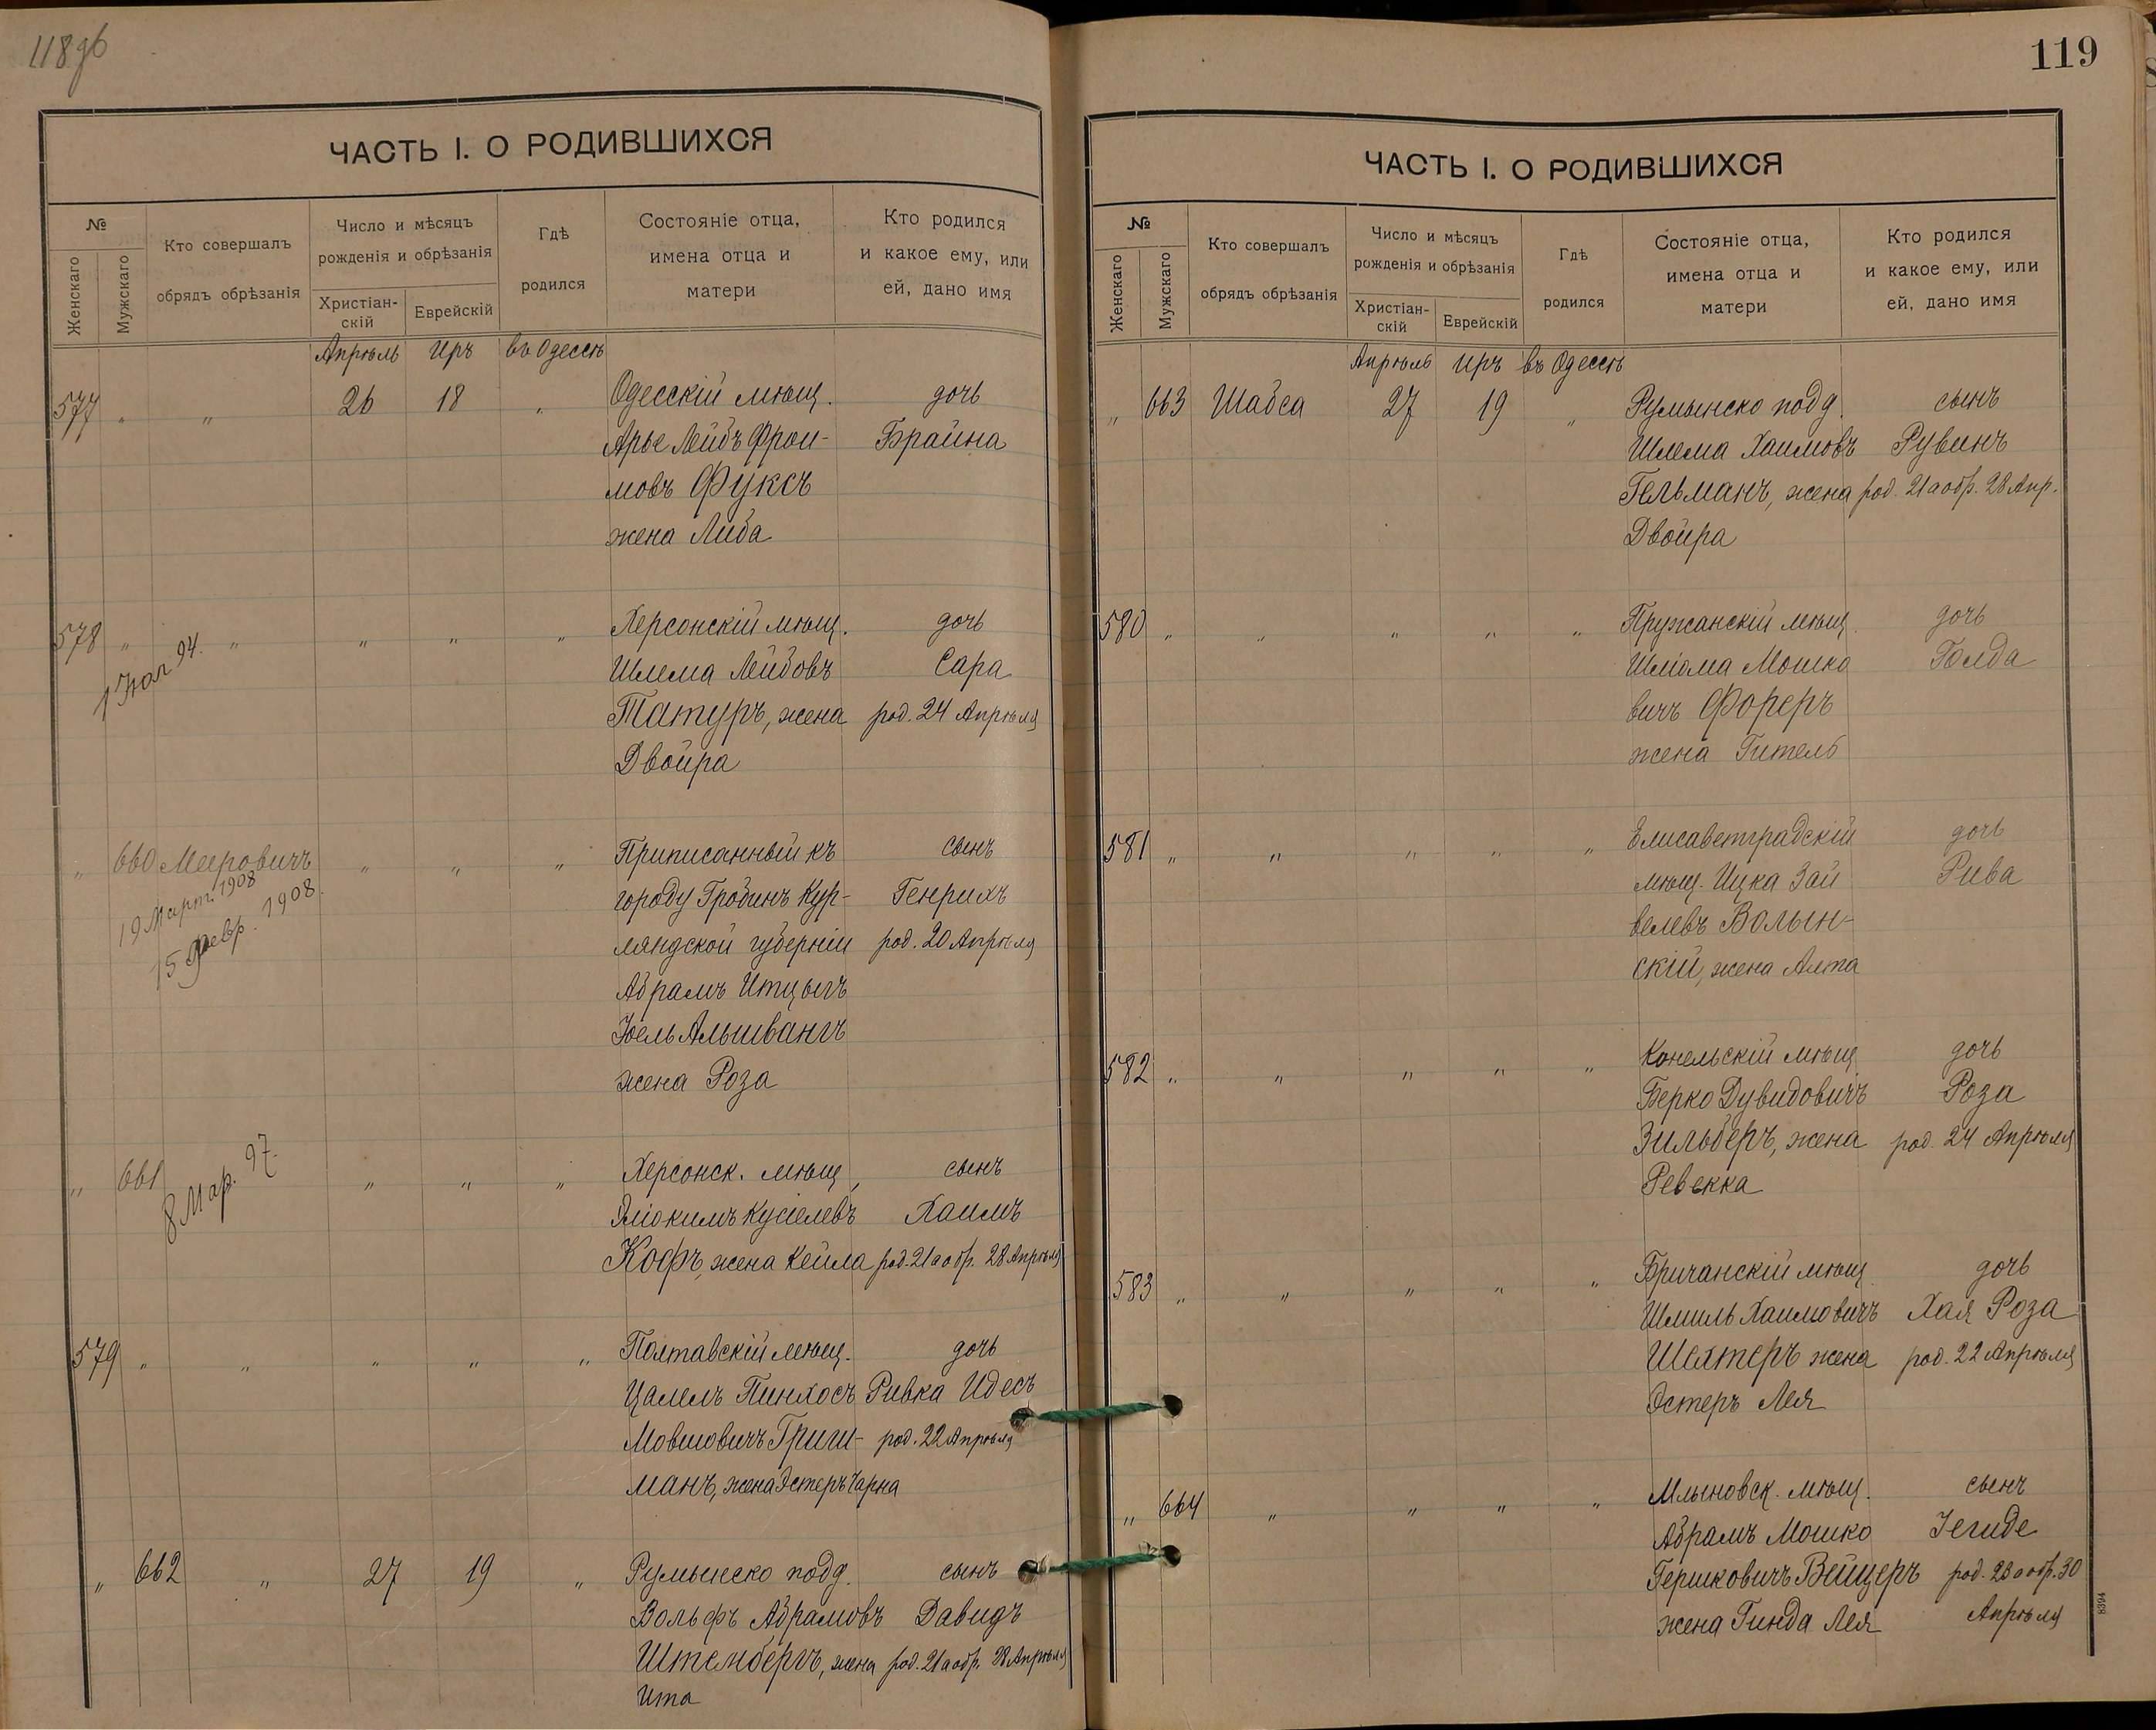 118об
ЧАСТЬ I. О РОДИВШИХСЯ
№
Женскаго
Мужскаго
Кто совершалъ
обрядъ обрѣзанія
Число и мѣсяцъ
рожденія и обрѣзанія
Христіан-
скій
Еврейскій
Гдѣ
родился
Состояніе отца,
имена отца и
матери
Кто родился
и какое ему, или
ей, дано имя
Апрѣль Иръ въ Одессѣ
577 " " 26 18 " Одесскій мѣщ. дочь
Арье Лейбъ Фрои- Брайна
мовъ Фуксъ
жена Либа
578 " " " " " Херсонскій мѣщ. дочь
94.
Шлема Лейбовъ Сара
Татуръ, жена род. 24 Апрѣля
Двойра
" 660 Меировичъ " " " Приписанный къ сынъ
19 Март. 1908
15 Февр. 1908.
городу Гробинъ Кур- Генрихъ
ляндской губерніи род. 20 Апрѣля
Абрамъ Итцыгъ
Іоель Альшвангъ
жена Роза
" 661 " " " Херсонск. мѣщ. сынъ
8 Мар. 97.
Эліокимъ Кусіелевъ Хаимъ
Кофъ, жена Кейла род. 21 а обр. 28 Апрѣля
579 " " " " " Полтавскій мѣщ. дочь
Цалелъ Пинхосъ Ривка Идесъ
Мовшовичъ Гриш- род. 22 Апрѣля
манъ, жена Эстеръ Чарна
" 662 " 27 19 " Румынско подд. сынъ
Вольфъ Абрамовъ Давидъ
Штенбергъ, жена род. 21 а обр. 28 Апрѣля
Ита
119
ЧАСТЬ I. О РОДИВШИХСЯ
№
Женскаго
Мужскаго
Кто совершалъ
обрядъ обрѣзанія
Число и мѣсяцъ
рожденія и обрѣзанія
Христіан-
скій
Еврейскій
Гдѣ
родился
Состояніе отца,
имена отца и
матери
Кто родился
и какое ему, или
ей, дано имя
Апрѣль Иръ въ Одессѣ
" 663 Шабса 27 19 " Румынско подд. сынъ
Шлема Хаимовъ Рувинъ
Гельманъ, жена род. 21 а обр. 28 Апр.
Двойра
580 " " " " " Пружанскій мѣщ. дочь
Шліома Мошко Голда
вичъ Фореръ
жена Гитель
581 " " " " " Елисаветградскій дочь
мѣщ. Ицка Зай Рива
велевъ Волын-
скій, жена Алта
582 " " " " " Конельскій мѣщ. дочь
Берко Дувидовичъ Роза
Зильберъ, жена род. 24 Апрѣля
Ревекка
583 " " " " " Бричанскій мѣщ. дочь
Шмиль Хаимовичъ Хая Роза
Шехтеръ жена род. 22 Апрѣля
Эстеръ Лея
" 664 " " " " Млыновск. мѣщ. сынъ
Абрамъ Мошко Іегиде
Гершковичъ Вейцеръ род. 23 а обр. 30
жена Гинда Лея Апрѣля
8394